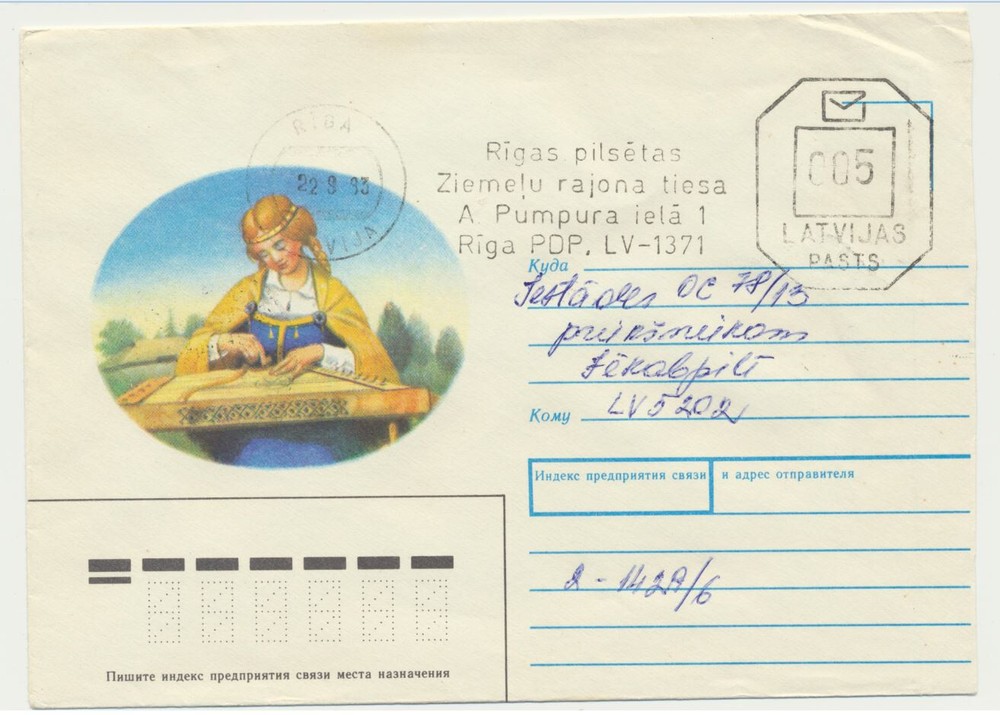 RĪGA
22 8 93
Rīgas pilsētas
Ziemeļu rajona tiesa
A. Pumpura ielā 1
Rīga PDP, LV-1371
005
LATVIJAS
PASTS
Куда
Iestādes OC 78/13
priekšniekam
Jēkabpilī
Кому LV 5202
Индекс предприятия связи и адрес отправителя
2-1429/6
Пишите индекс предприятия связи места назначения